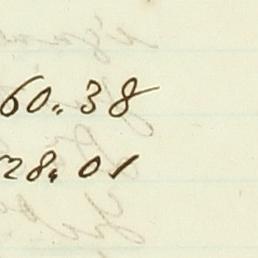 60.. 38
28.. 01